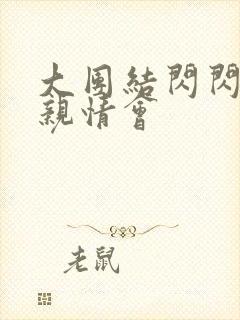 大団結閃閃
親情會
老鼠